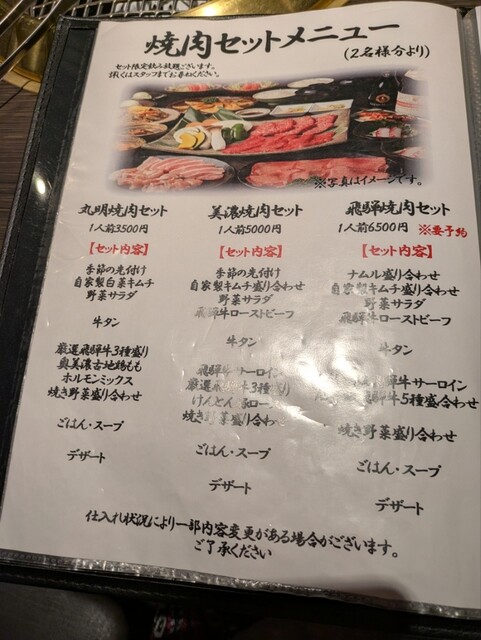 焼肉セットメニュー
(2名様分より)
セット限定飲み放題ございます。
詳しくはスタッフまでお尋ねください。
※写真はイメージです。
丸明焼肉セット
1人前3500円
【セット内容】
季節の先付け
自家製白菜キムチ
野菜サラダ
牛タン
厳選飛騨牛3種盛り
奥美濃古地鶏もも
ホルモンミックス
焼き野菜盛り合わせ
ごはん・スープ
デザート
美濃焼肉セット
1人前5000円
【セット内容】
季節の先付け
自家製キムチ盛り合わせ
野菜サラダ
飛騨牛ローストビーフ
牛タン
飛騨牛サーロイン
厳選飛騨牛3種盛り
けんとん
焼き野菜盛り合わせ
ごはん・スープ
デザート
飛騨焼肉セット
1人前6500円 ※要予約
【セット内容】
ナムル盛り合わせ
自家製キムチ盛り合わせ
野菜サラダ
飛騨牛ローストビーフ
牛タン
飛騨牛サーロイン
飛騨牛5種盛合わせ
焼き野菜盛り合わせ
ごはん・スープ
デザート
仕入れ状況により一部内容変更がある場合がございます。
ご了承ください